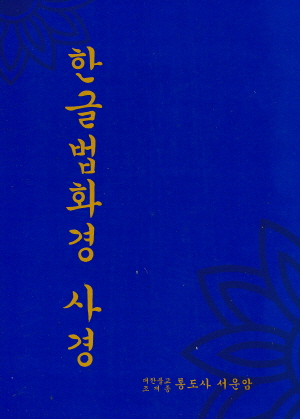 한글법화경 사경
대한불교
조계종 통도사 서운암